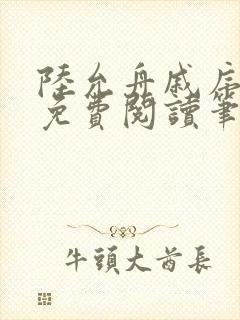 陸允舟戚
免費閱讀筆
牛頭大酋長